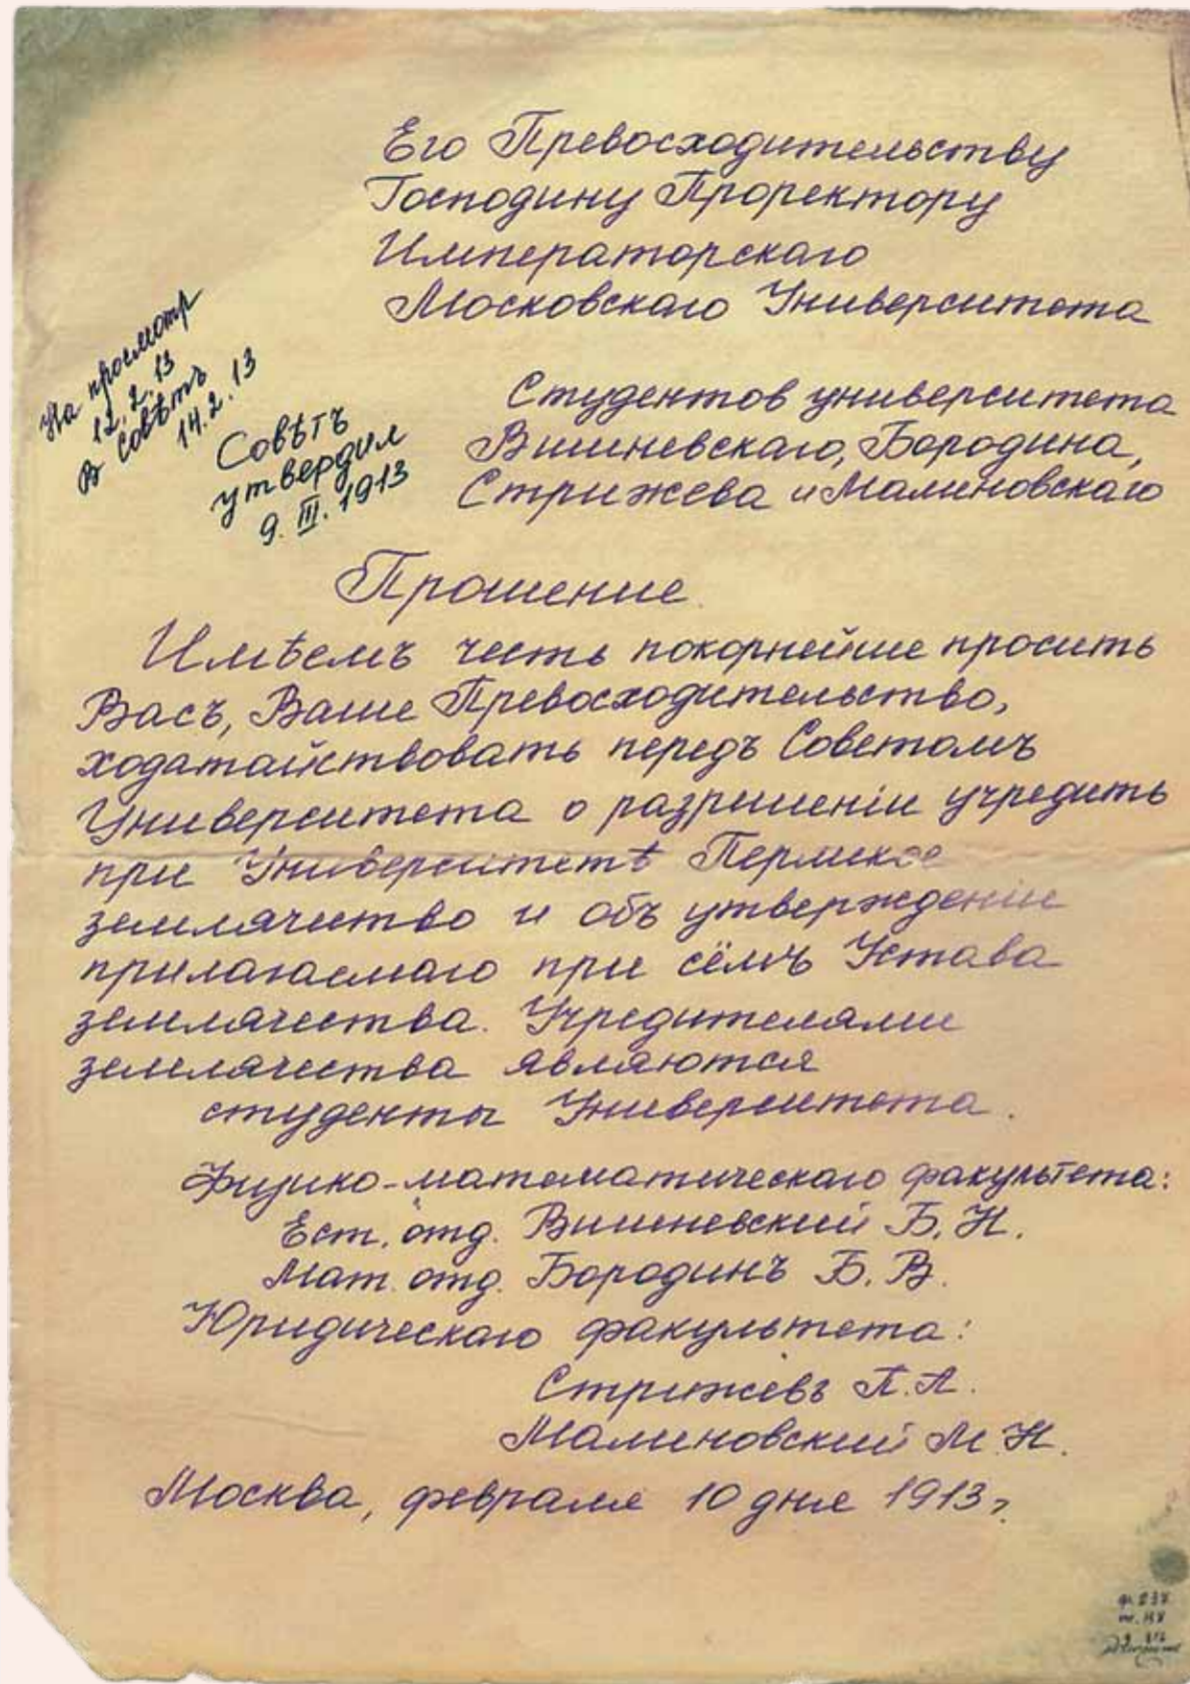 Его Превосходительству
Господину Проректору
Императорскаго
Московскаго Университета
На просмотр
12.2.13
В Совѣтъ
14.2.13
Совѣтъ
утвердил
9.III.1913
Студентов университета
Вишневскаго, Бородина,
Стрижева и Малиновскаго
Прошение
Имѣемъ честь покорнейше просить
Васъ, Ваше Превосходительство,
ходатайствовать передъ Советомъ
Университета о разрешенiи учредить
при Университетѣ Пермское
землячество и объ утверждение
прилагаемаго при сёмъ Устава
землячества. Учредителями
землячества являются
студенты Университета.
Физико-математическаго факультета:
Ест. отд. Вишневский Б.Н.
Мат. отд. Бородинъ Б.В.
Юридическаго факультета:
Стрижевъ П.А.
Малиновский М.Н.
Москва, февраля 10 дня 1913г.